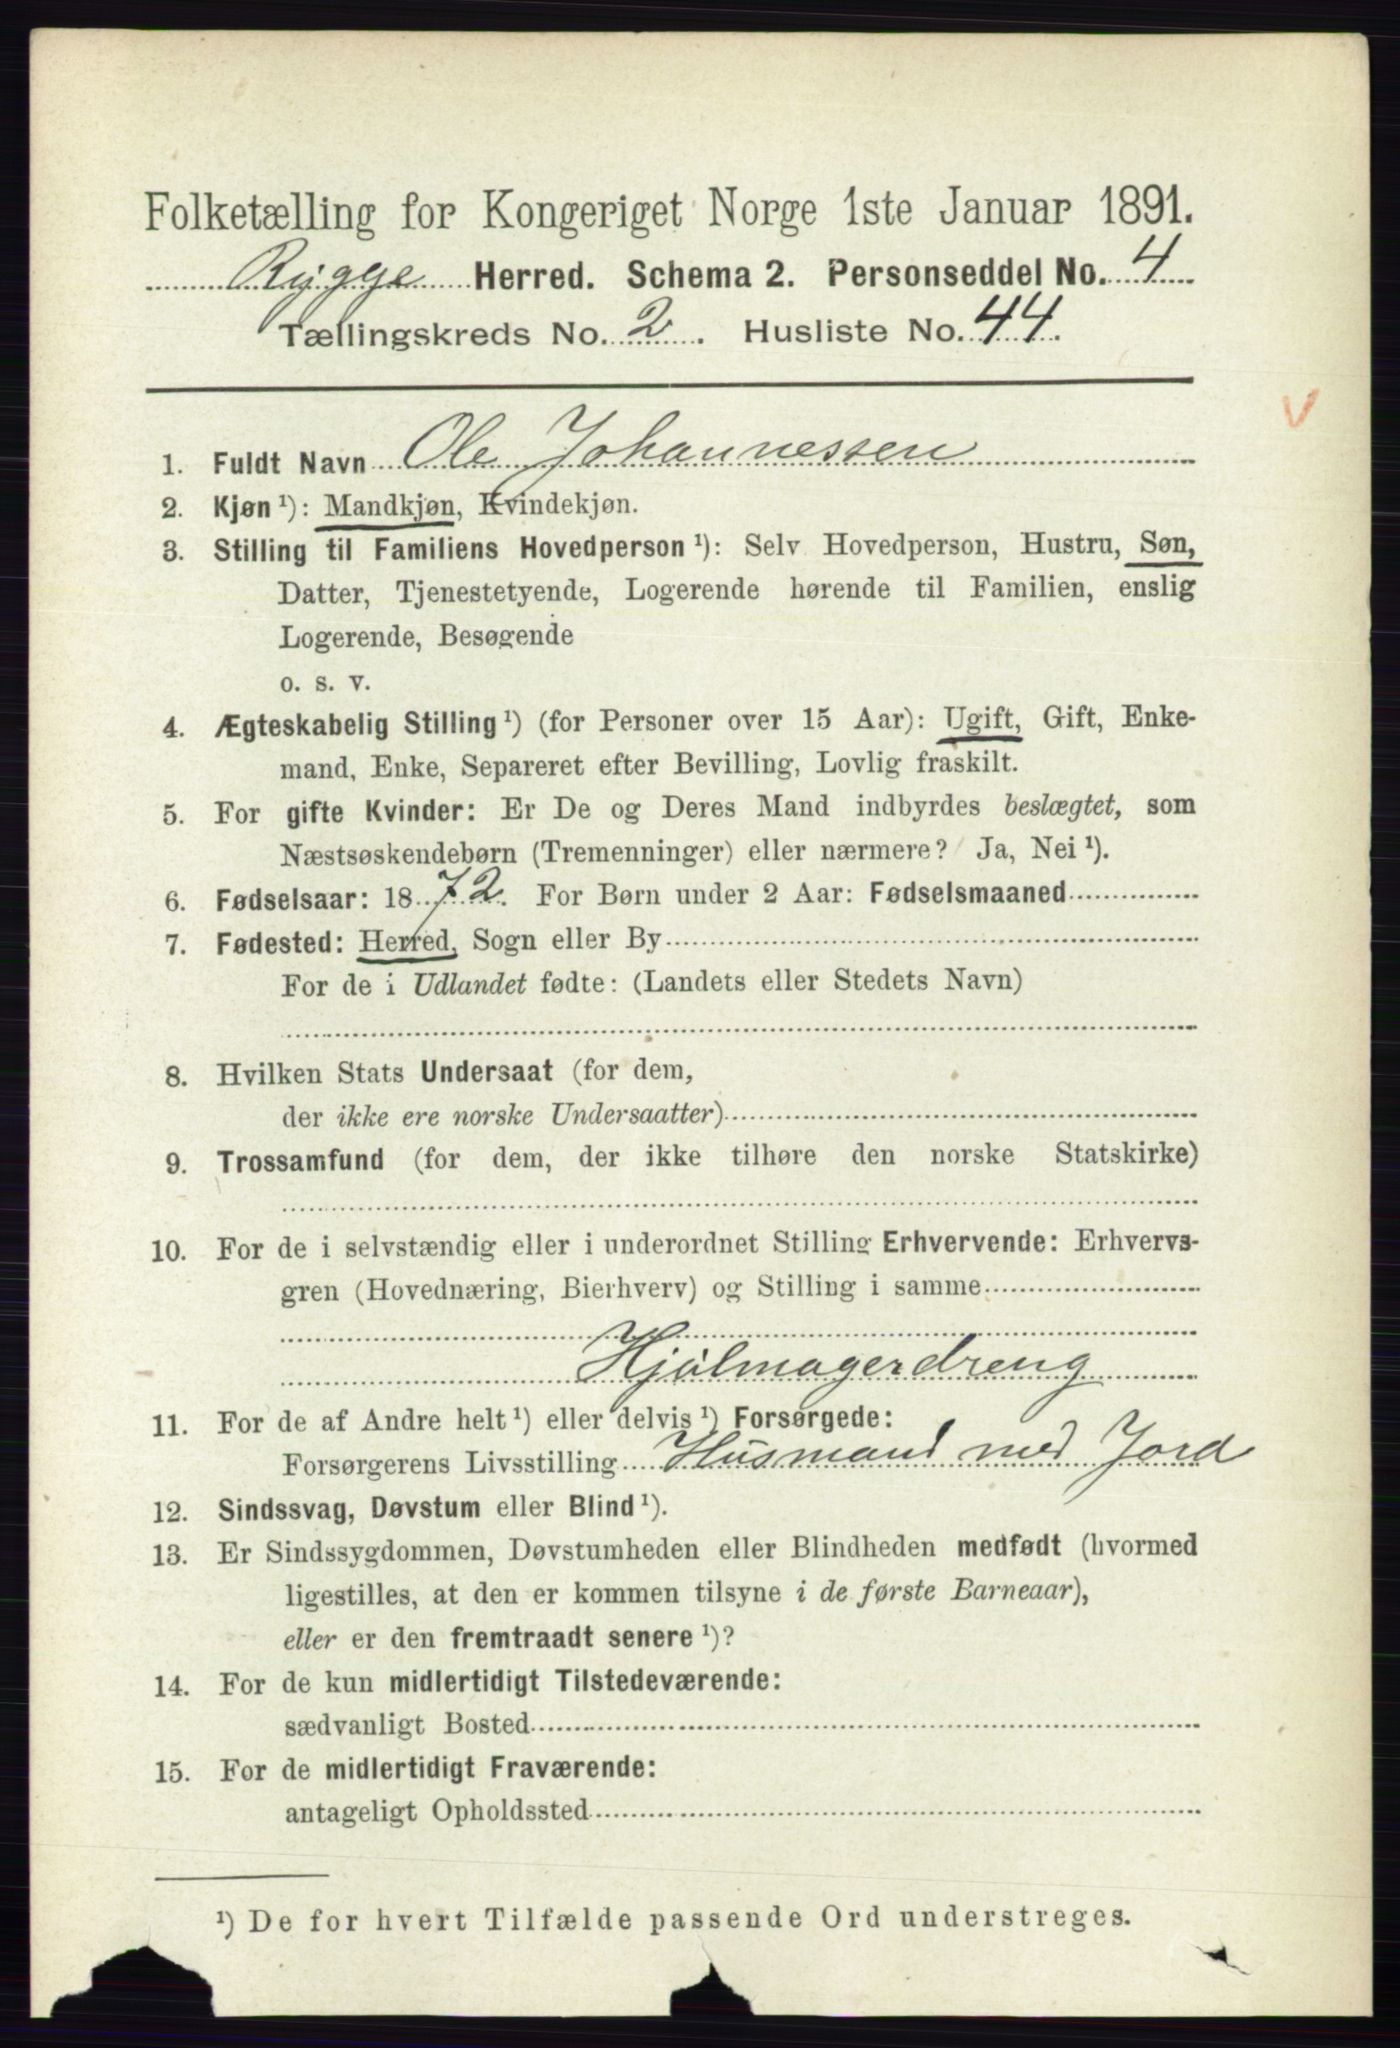 Folketælling for Kongeriget Norge 1ste Januar 1891.
Rygge Herred. Schema 2. Personseddel No. 4
Tællingskreds No. 2. Husliste No. 44.
1. Fuldt Navn Ole Johannessen
2. Kjøn ¹): Mandkjøn, Kvindekjøn.
3. Stilling til Familiens Hovedperson ¹): Selv Hovedperson, Hustru, Søn,
Datter, Tjenestetyende, Logerende hørende til Familien, enslig
Logerende, Besøgende
o. s. v.
4. Ægteskabelig Stilling ¹) (for Personer over 15 Aar): Ugift, Gift, Enke-
mand, Enke, Separeret efter Bevilling, Lovlig fraskilt.
5. For gifte Kvinder: Er De og Deres Mand indbyrdes beslægtet, som
Næstsøskendebørn (Tremenninger) eller nærmere? Ja, Nei ¹).
6. Fødselsaar: 1872. For Børn under 2 Aar: Fødselsmaaned
7. Fødested: Herred, Sogn eller By
For de i Udlandet fødte: (Landets eller Stedets Navn)
8. Hvilken Stats Undersaat (for dem,
der ikke ere norske Undersaatter)
9. Trossamfund (for dem, der ikke tilhøre den norske Statskirke)
10. For de i selvstændig eller i underordnet Stilling Erhvervende: Erhvervs-
gren (Hovednæring, Bierhverv) og Stilling i samme
Hjólmagerdreng
11. For de af Andre helt ¹) eller delvis ¹) Forsørgede:
Forsørgerens Livsstilling Husmand med Jord
12. Sindssvag, Døvstum eller Blind ¹).
13. Er Sindssygdommen, Døvstumheden eller Blindheden medfødt (hvormed
ligestilles, at den er kommen tilsyne i de første Barneaar),
eller er den fremtraadt senere ¹)?
14. For de kun midlertidigt Tilstedeværende:
sædvanligt Bosted
15. For de midlertidigt Fraværende:
antageligt Opholdssted
¹) De for hvert Tilfælde passende Ord understreges.